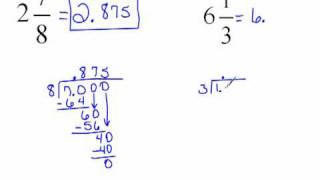 2 7/8 = 2.875
6 1/3 = 6.
.875
8 7.000
-64
60
-56
40
-40
0
.
3 1.